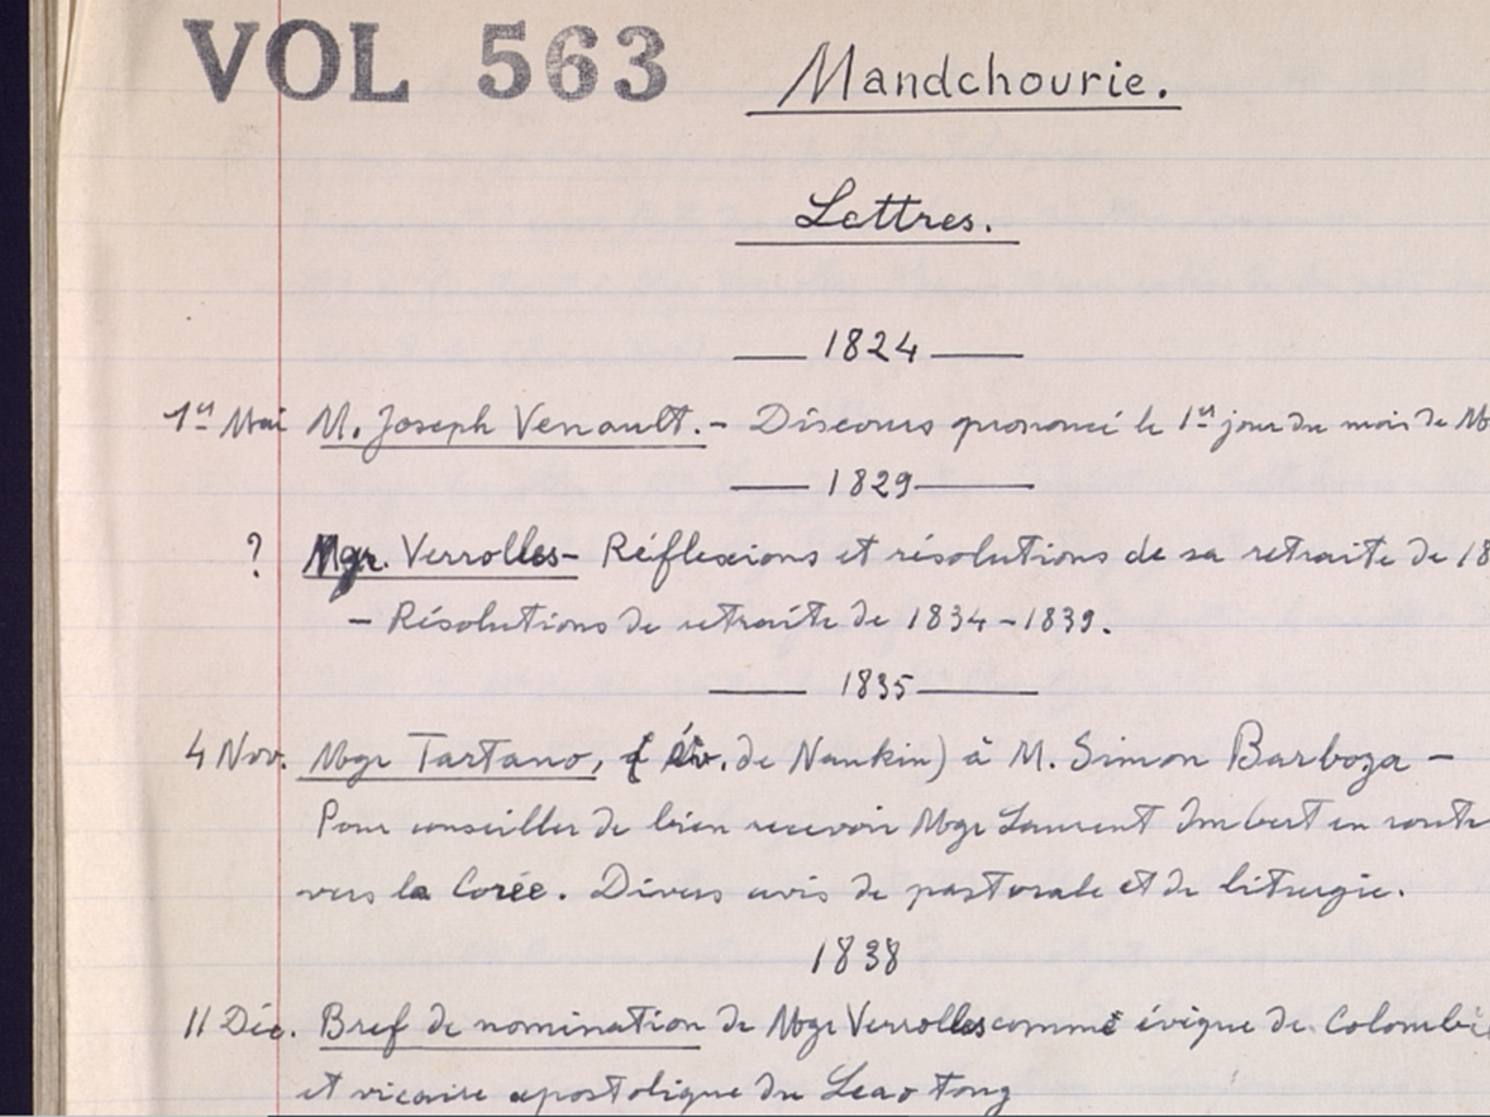 VOL 563
Mandchourie.
Lettres.
— 1824 —
1er Mai M. Joseph Venault. - Discours prononcé le 1er jour du mois de
— 1829 —
? Mgr. Verrolles - Réflexions et résolutions de sa retraite de 18
- Résolutions de retraite de 1834-1839.
— 1835 —
4 Nov. Mgr Tartano, (év. de Nankin) à M. Simon Barboza -
Pour conseiller de bien recevoir Mgr Laurent Imbert en route
vers la Corée. Divers avis de pastorale et de liturgie.
1838
11 Déc. Bref de nomination de Mgr Verrolles comme évêque de Colombie
et vicaire apostolique du Leao Tong